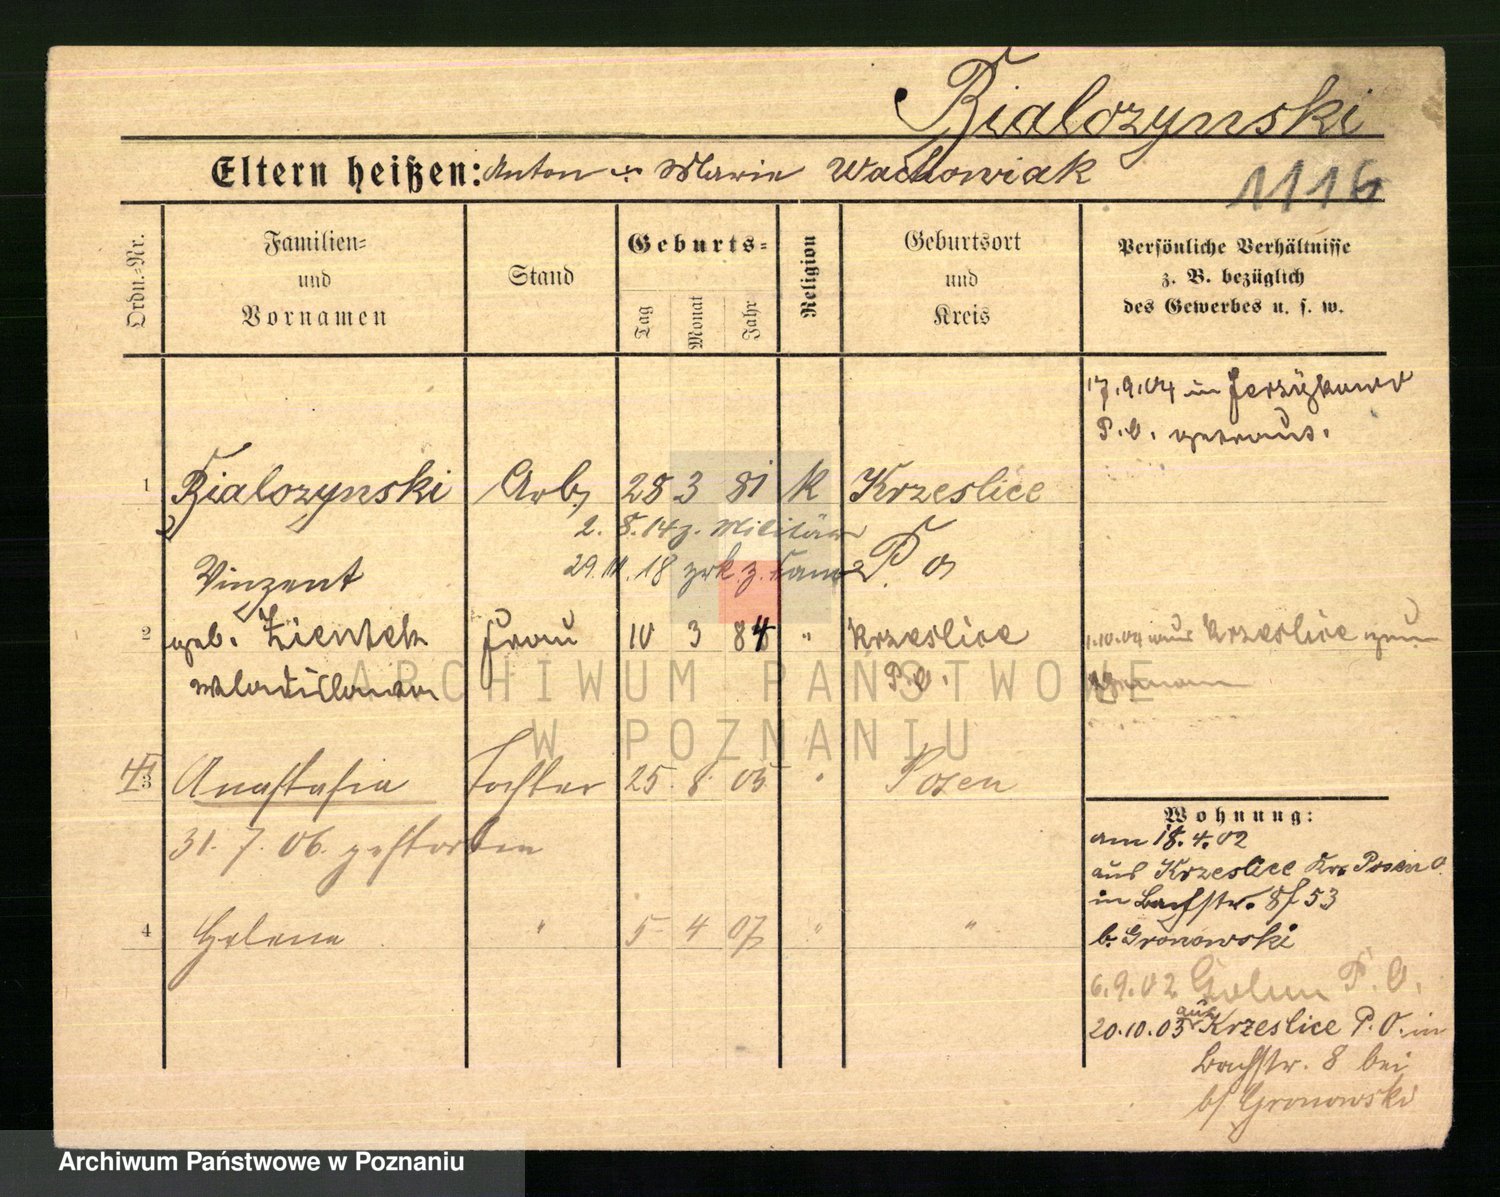 Bialozynski
Eltern heißen: Anton u. Marie Wachowiak
1116
Ordn.=Nr.
Familien=
und
Vornamen
Stand
Geburts=
Tag
Monat
Jahr
Religion
Geburtsort
und
Kreis
Persönliche Verhältnisse
z. B. bezüglich
des Gewerbes u. s. w.
17.9.04 in Jerzykowo
P.O. getraut.
1 Bialozynski Arb. 28 3 81 K Krzeslice
2. 8. 14 z. Militär
29. 18 zrk. z. Fam. P. O
Vinzent
2 geb. Zientek Frau 10 3 84 " Krzeslice
1.10.04 aus Krzeslice
Wladislawa P.O.
3 Anastasia Tochter 25 8 05 " Posen
31. 7. 06. gestorben
4 Helena " 5 4 07 " "
Wohnung:
am 18.4.02
aus Krzeslice Krs Posen O.
in Bachstr. 8 / 53
b. Gronowski
6.9.02 P. O.
20.10.03 aus Krzeslice P. O. in
Bachstr. 8 bei
b/ Gronowski
ARCHIWUM PAŃSTWOWE
W POZNANIU
Archiwum Państwowe w Poznaniu